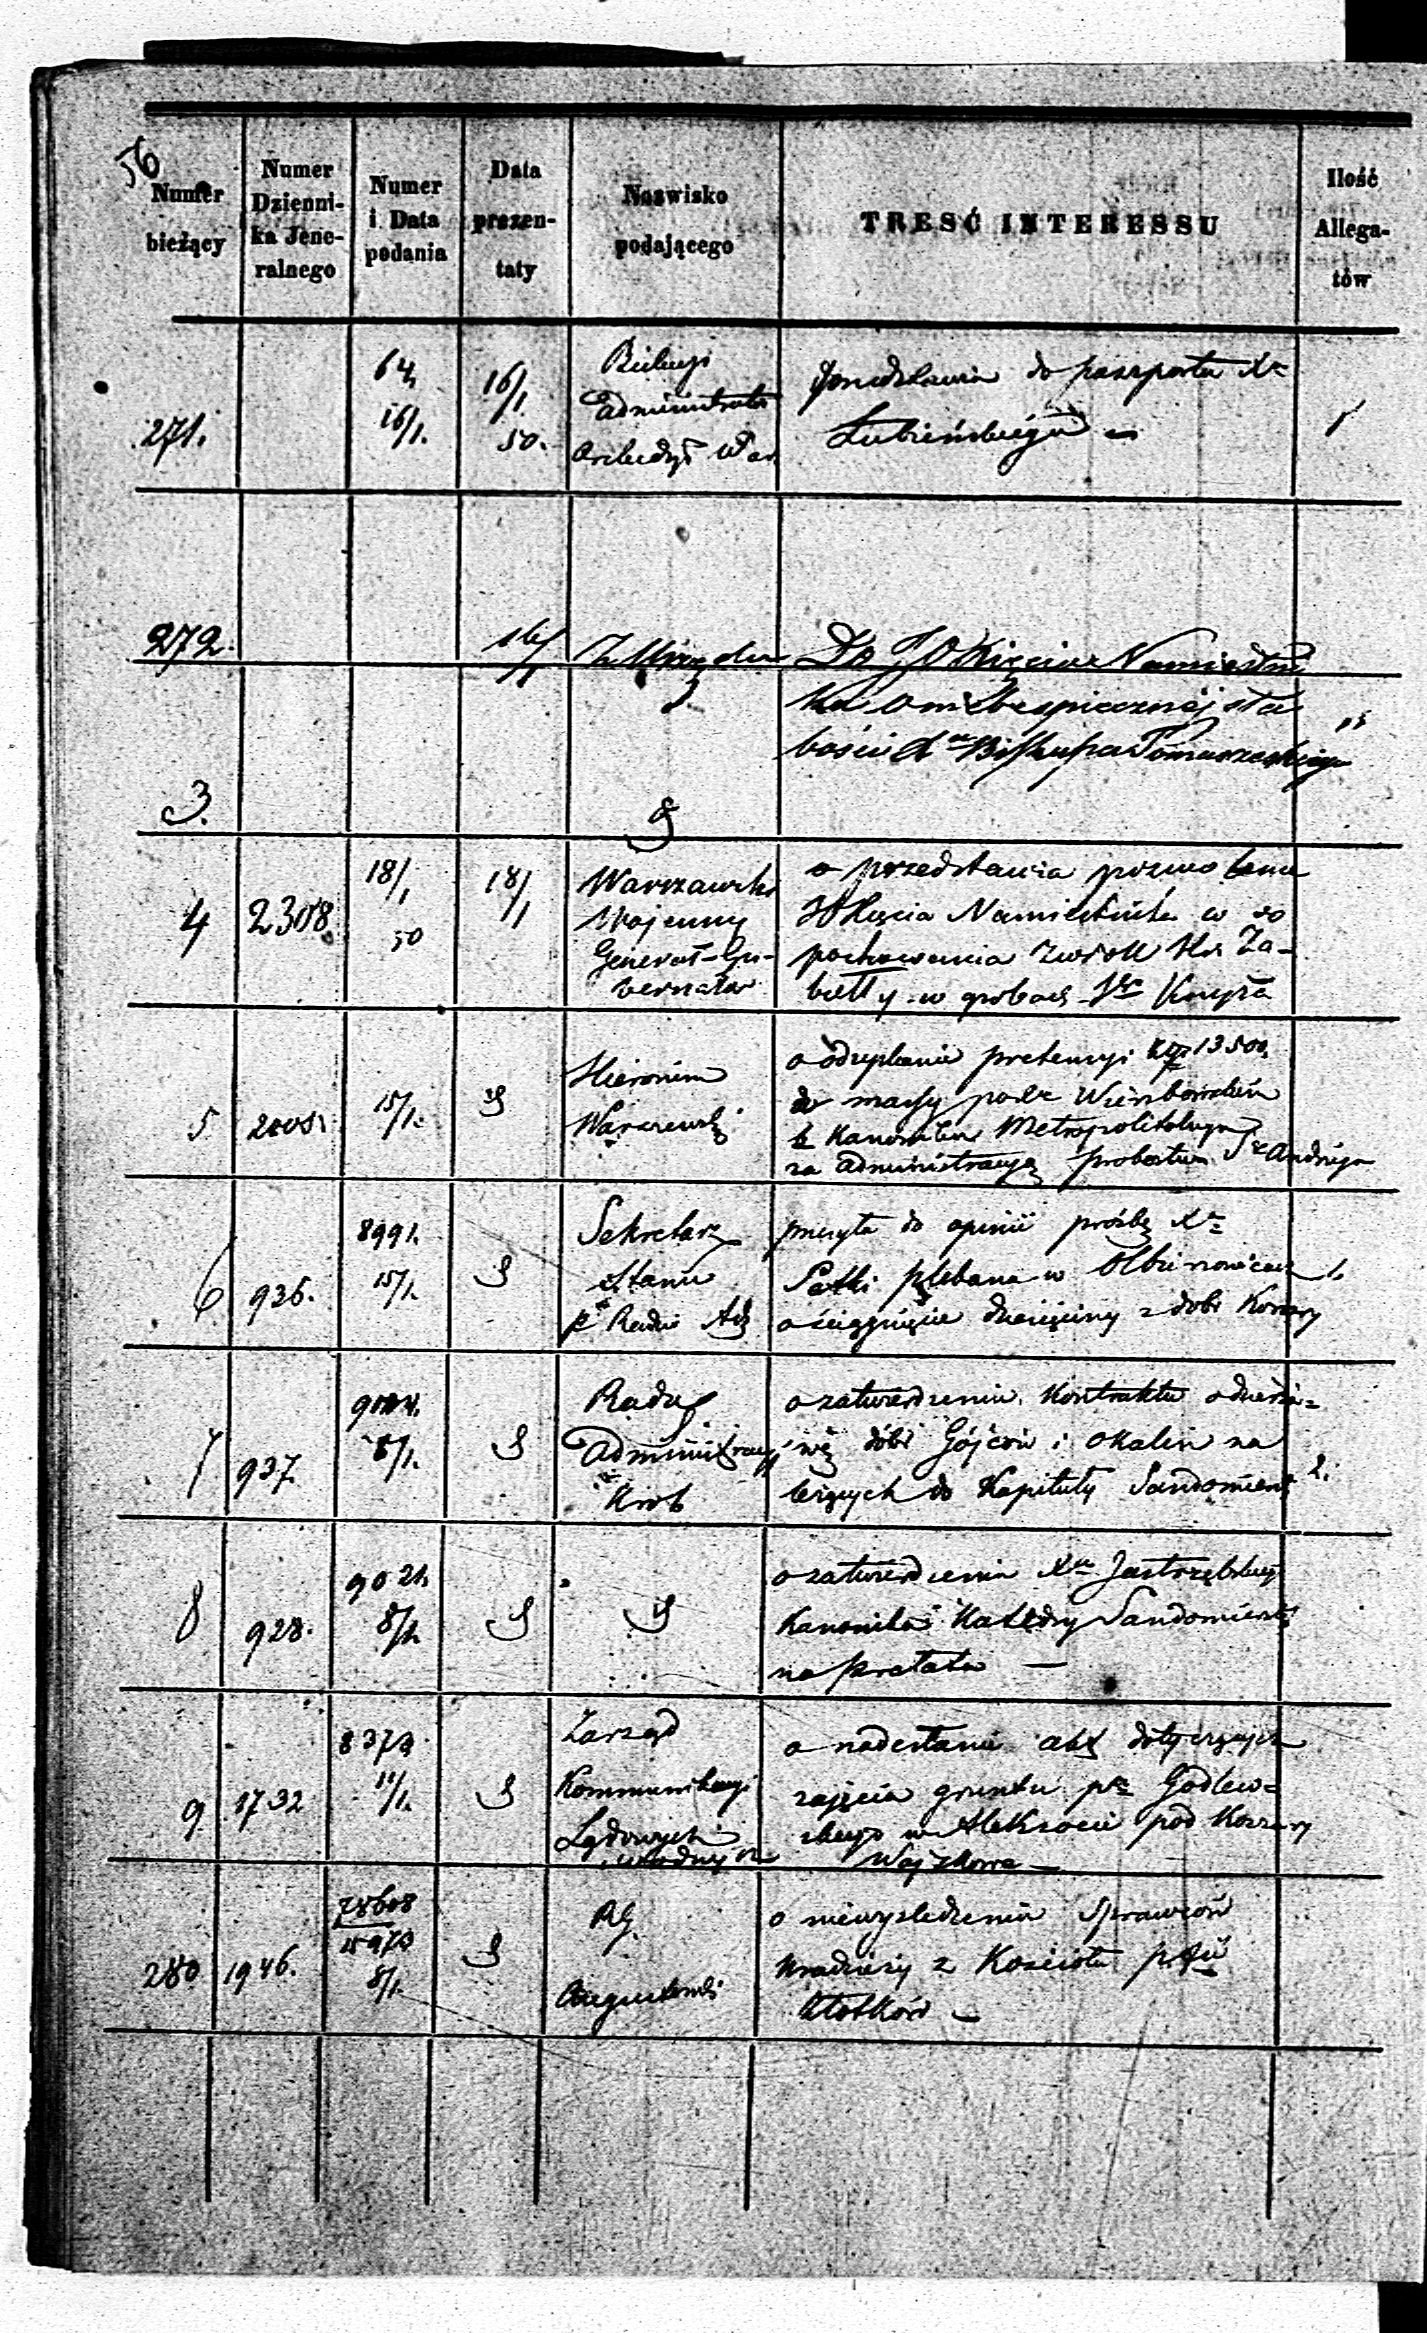 56
Numer bieżący
Numer Dzienni-ka Jene-ralnego
Numer i Data podania
Data prezen-taty
Nazwisko podającego
TRESĆ INTERESSU
Ilość Allega-tów
271.
64.
16/1.
16/1.
50.
Administrator
do paszportu Xa
Łubieńskiego
1
272.
16/1
Z Urzędu
Do JO Xięcia Namiestni
ka o niebezpiecznéj sła
bości Xa Biskupa Tomaszewskiego
3.
4
2308
18/1
50
18/1
Warszawski
Wojenny
Generał-Gu-
bernator
o przedstawia pozwolenie
JO Xięcia Namiestnika w
pochowania zwłok Za-
biełły w grobach Krzyża
5
15/1.
Hieronim
Warszewski
o odzyskanie pretensyi 13500
do massy
Kanonika Metropolitalnego
za administracyą probostwa Andrzeja
6
936.
8991.
15/1.
Sekretarz
Stanu
p Radzie
do opinii prośbę Xa
plebana w Olbierzowicach
o ściągnięcie dziesięciny z dóbr
1.
7
937
8/1.
Rada
Administracyj
Król
o zatwierdzenie Kontraktu o dzierża=
wę dóbr Gójców i Okalin na
leżących do Kapituły Sandomiers
2.
8
928.
9021.
8/1.
o zatwierdzenia Xa Jastrzębskieg
Kanonika Katedry Sandomiersk
na prałata —
9
1732
11/1.
Zarząd
Kommunikacyi
Lądowych
i wodnych
o nadesłanie akt dotyczących
zajęcia gruntu pa Godlew=
skiego w Aleksocie pod Koszary
Wojskowe —
280
1946.
8/1.
RG.
Augustowski
o niewyśledzeniu Sprawców
kradzieży z Kościoła